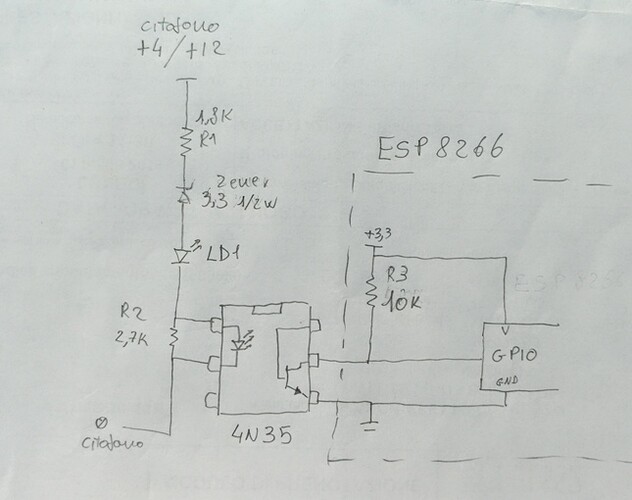 citofono
+4/+12
1,8K
R1
Zener
3,3 1/2W
LD1
R2
2,7K
citofono
4N35
ESP8266
+3,3
R3
10K
GPIO
GND